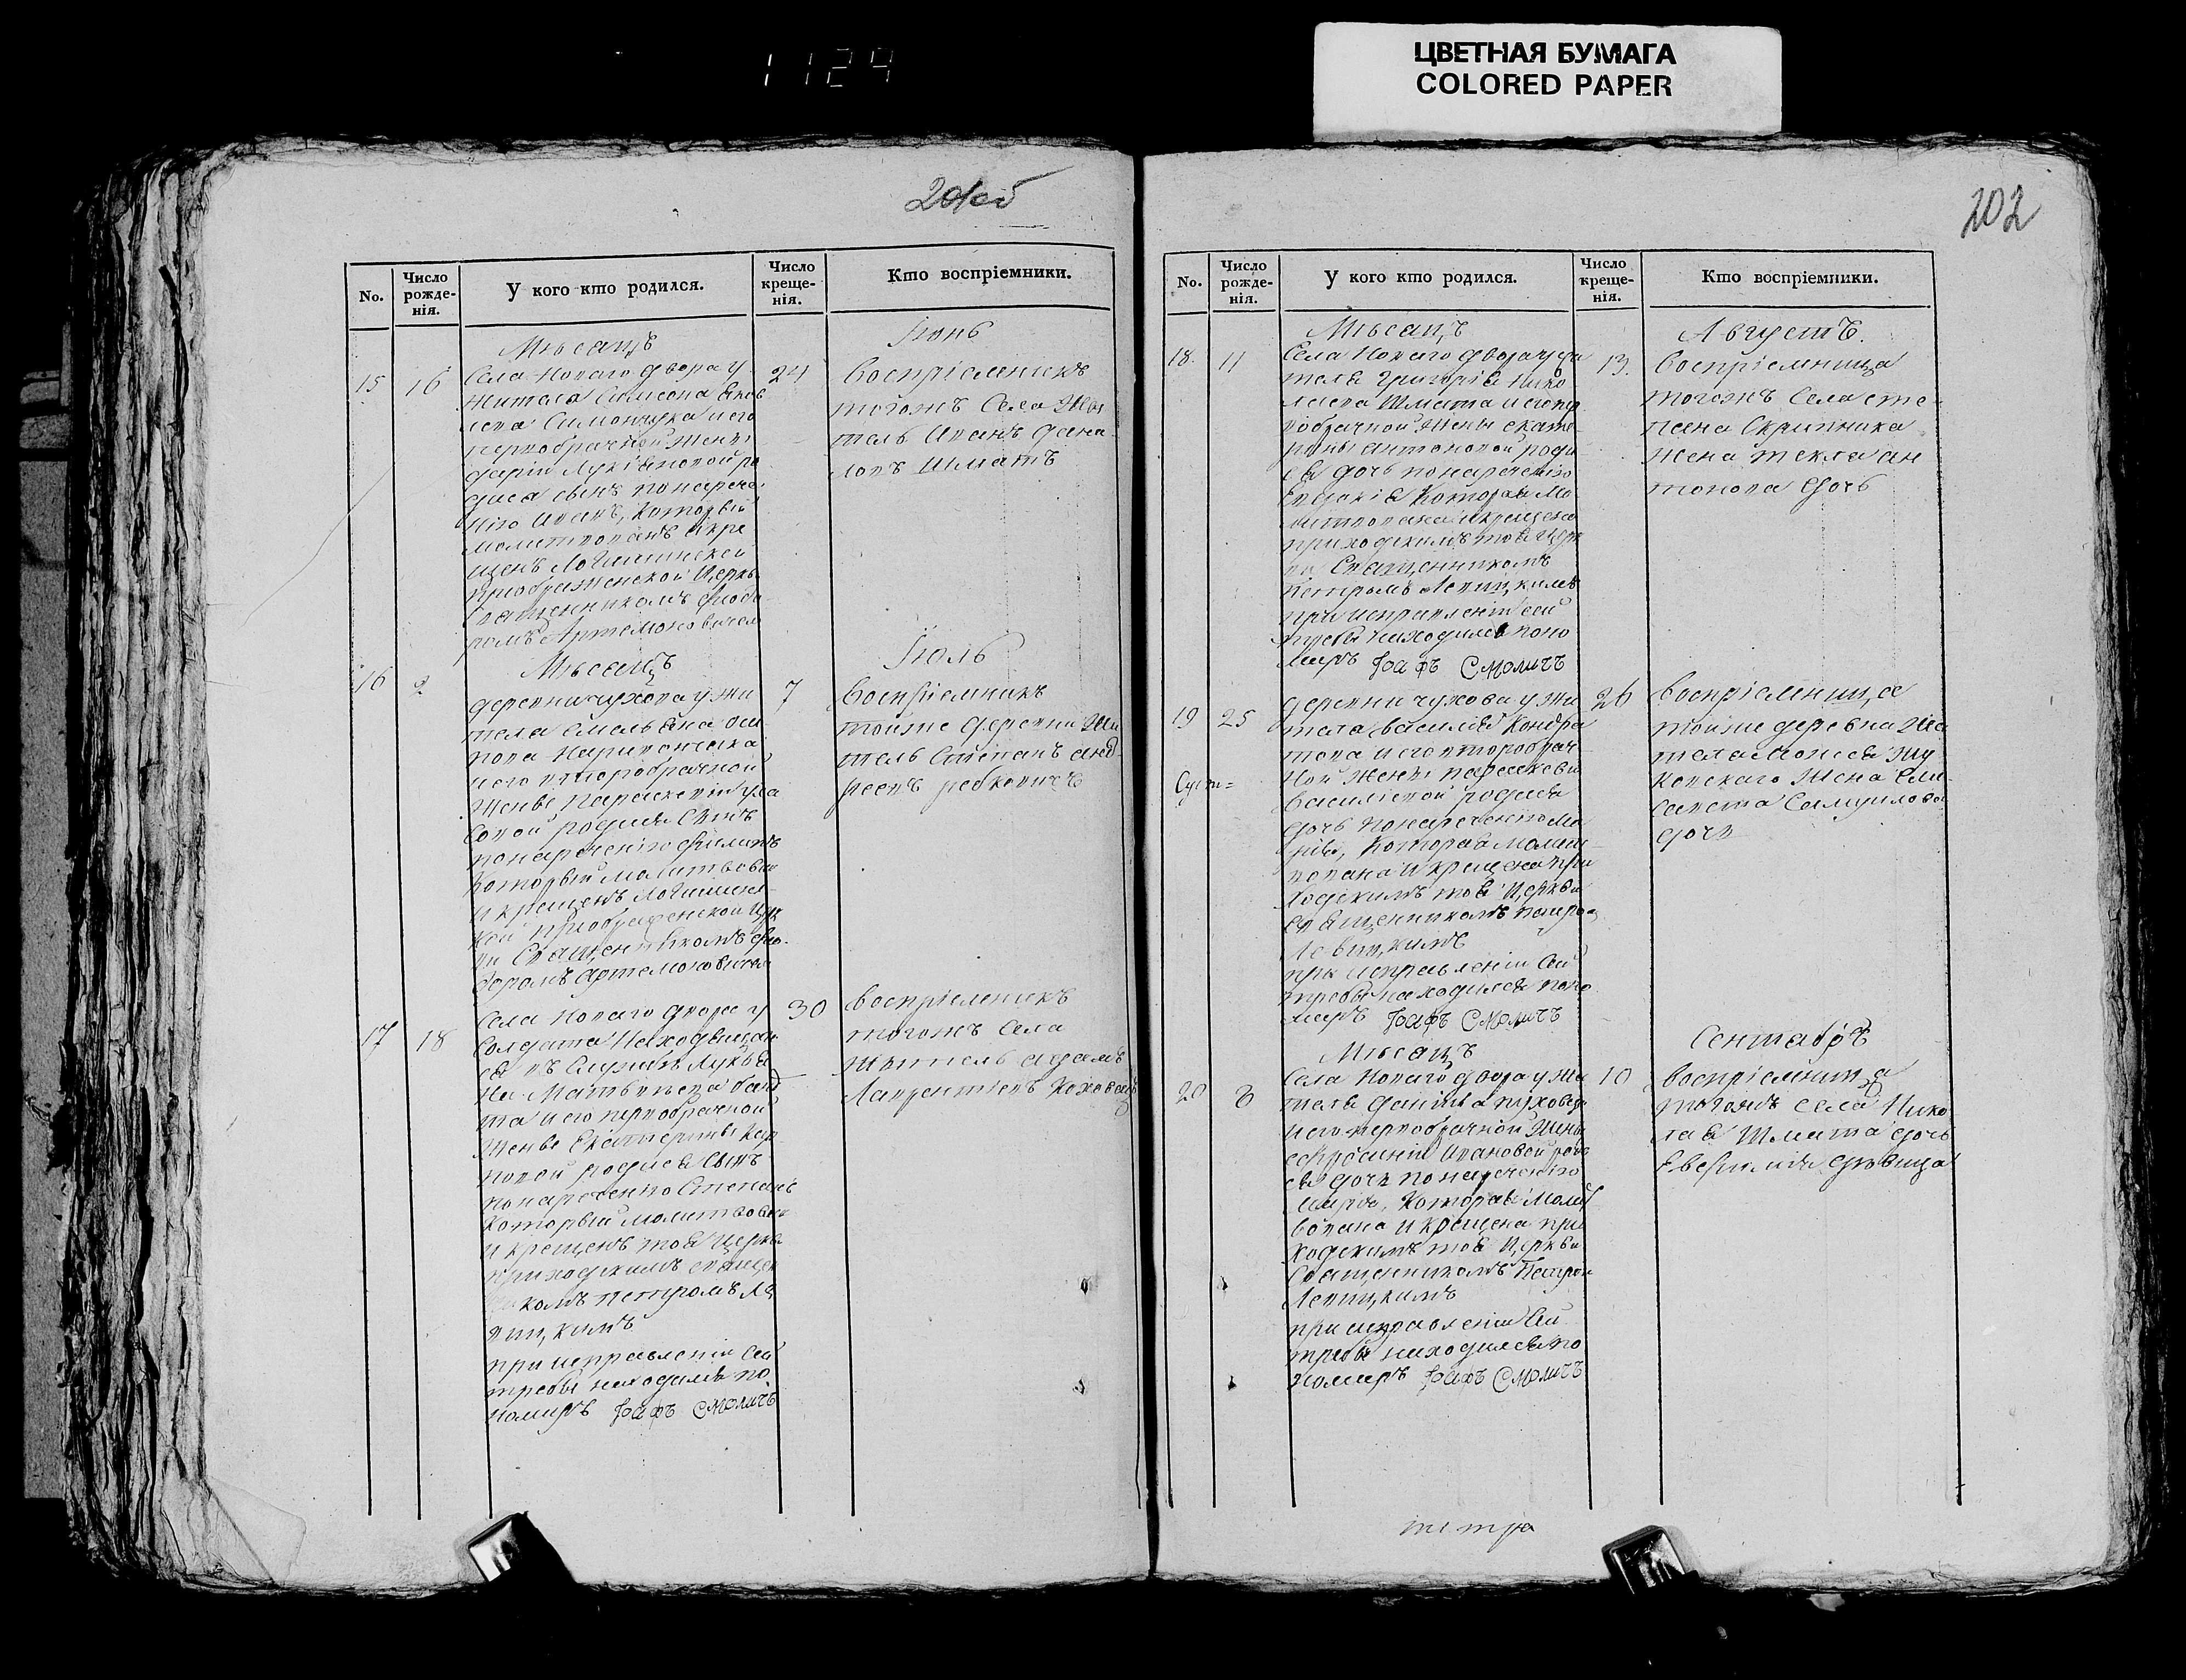 1124
ЦВЕТНАЯ БУМАГА
COLORED PAPER
201об
No.
Число рожде-нія.
У кого кто родился.
Число креще-нія.
Кто воспріемники.
Мѣсацъ
Іюнь
15 16
Села Новаго двора у
жителя Симеона
Симончука и его
первобрачной жены
Дарiи Лукіяновой ро
дися сынъ по нарече
нію Иванъ, который
молитвованъ и кре
щенъ Логишинской
приображенской Церкви
Священникомъ Феодо
ромъ Артемоновичем
24
воспріемникъ
тогожъ Села Жи
тель Иванъ Дани
ловъ Шматъ
Мѣсацъ
Іюль
16 2
деревни чухова у жи
теля Емельяна Оси
пова
и его второбрачной
Жены Параскевiи
совой родися Сынъ
по нареченію Филипъ
который молитвован
и крещенъ Логишинс
кой приображенской Цер
ви Священникомъ Фео
доромъ Артемоновичем
7
Воспріемникъ
тойже деревни Жи
тель Степанъ анд
реевъ
17 18
Села Новаго двора у
Солдата Находящаго
ся въ Службѣ Лукья
на Матвѣева
та и его первобрачной
Женьі Екатерины
повой родися Сынъ
по нареченію Степанъ
который молитвован
и крещенъ тоя Церкви
приходскимъ священ
никомъ Петромъ Ле
вицкимъ
при исправленіи сей
требы находился по
номаръ Іоафъ Смоличъ
30
воспріемникъ
тогожъ Села
Житель адамъ
Лаврентіевъ
202
No.
Число рожде-нія.
У кого кто родился.
Число креще-нія.
Кто воспріемники.
Мѣсацъ
Августъ.
18. 11
Села Новаго двора у жи
теля Григорія Нико
лаева Шмата и его пер
вобрачной Жены Екате
рины антоновой роди
ся дочь по нареченію
Евдокія Которая Мо
литвована и крещена
приходскимъ тоя Церк
ви Священникомъ
Петромъ Левицкимъ
при исправленіи сей
требы находился поно
маръ Іоафъ Смоличъ
13.
воспріемница
тогожъ Села сте
пана Скрипника
жена текла ан
тонова дочь
19 25
деревни чухова у жи
теля василія Кондра
това и его второбрач
ной Жены параскеви
василіевой родися
дочь по нареченію Ма
рія, Которая молит
вована и крещена при
ходскимъ тоя Церкви
священникомъ петром
Левицкимъ
при исправленіи сей
требы находился поно
маръ Іоафъ Смоличъ
26
Воспріемница
тойже деревни Жи
теля Моисея Жу
ковскаго Жена Ели
савета Самуилова
дочь
Мѣсацъ
Сентабръ
20 8
Села Новаго двора у жи
теля Данiила
и его первобрачной Жены
Ефросиніи Ивановой роди
ся дочь по нареченію
Которая Молит
вована и крещена при
ходскимъ тоя Церкви
Священникомъ Петром
Левицкимъ
при исправленіи сей
требы находился по
номаръ Іоафъ Смоличъ
10
воспріемница
тогожъ села Нико
лая Шмата дочь
Евфимія дѣвица